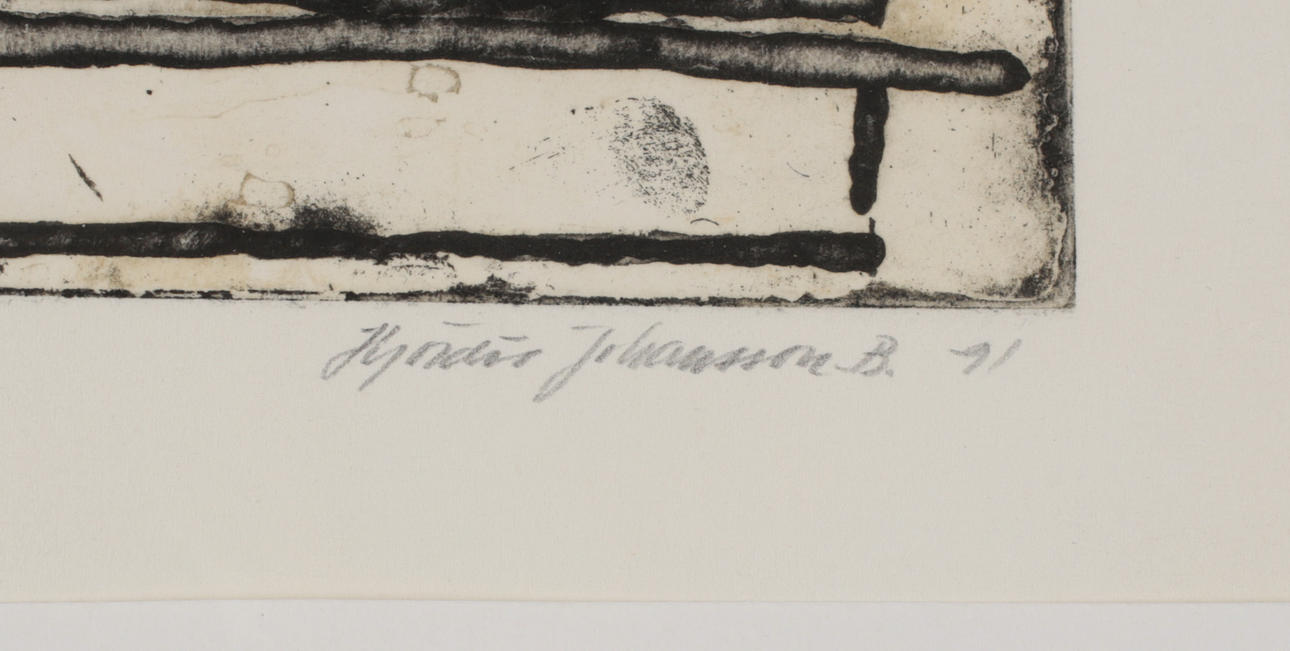 Hjördis Johansson B. -91